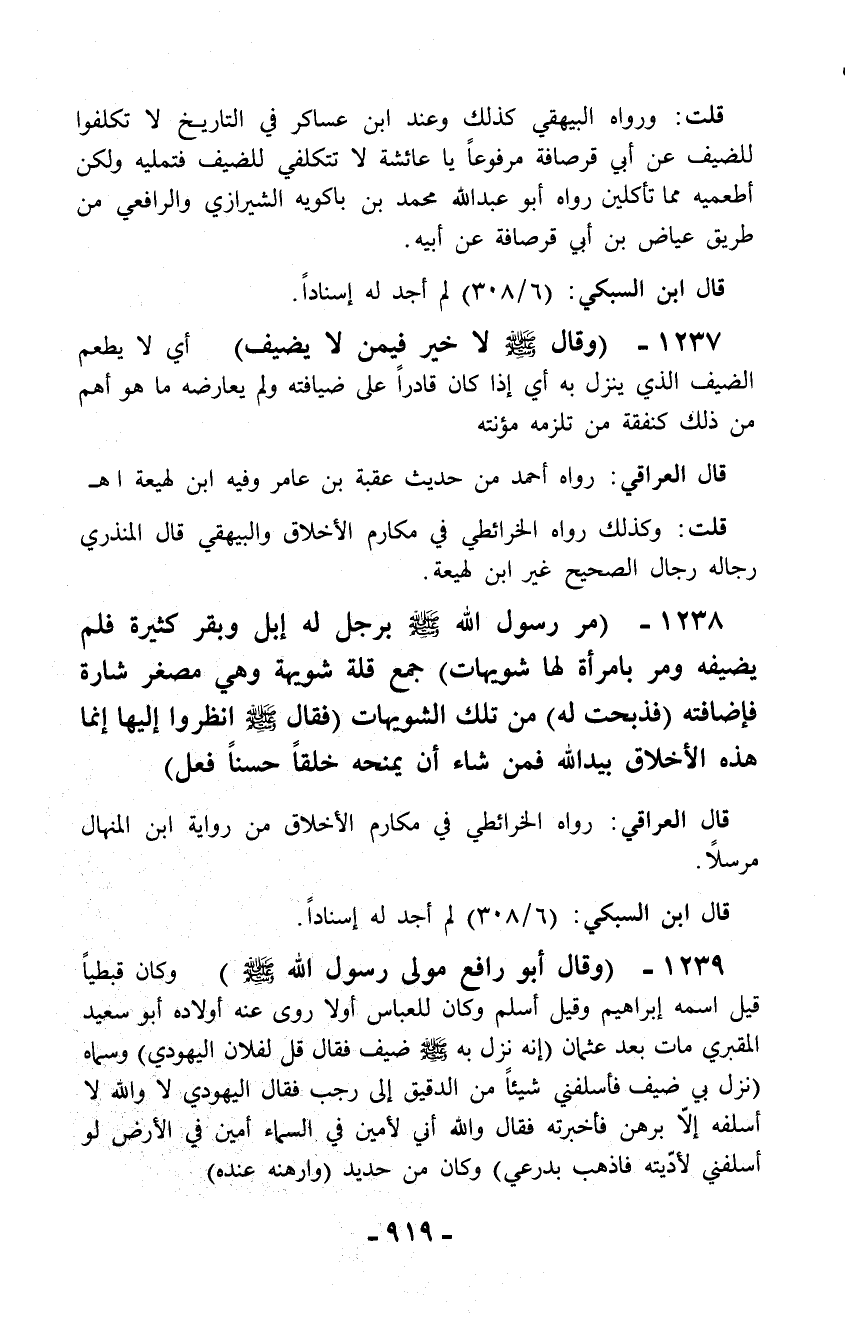 قلت: ورواه البيهقي كذلك وعند ابن عساكر في التاريخ لا تكلفوا
للضيف عن أبي قرصافة مرفوعاً يا عائشة لا تتكلفي للضيف فتمليه ولكن
أطعميه مما تأكلين رواه أبو عبدالله محمد بن باكويه الشيرازي والرافعي من
طريق عياض بن أبي قرصافة عن أبيه.
قال ابن السبكي: (٣٠٨/٦) لم أجد له إسناداً.
١٢٣٧ - (وقال ﷺ لا خير فيمن لا يضيف) أي لا يطعم
الضيف الذي ينزل به أي إذا كان قادراً على ضيافته ولم يعارضه ما هو أهم
من ذلك كنفقة من تلزمه مؤنته
قال العراقي: رواه أحمد من حديث عقبة بن عامر وفيه ابن لهيعة ا هـ
قلت: وكذلك رواه الخرائطي في مكارم الأخلاق والبيهقي قال المنذري
رجاله رجال الصحيح غير ابن لهيعة.
١٢٣٨ - (مر رسول الله ﷺ برجل له إبل وبقر كثيرة فلم
يضيفه ومر بامرأة لها شويهات) جمع قلة شويهة وهي مصغر شارة
فإضافته (فذبحت له) من تلك الشويهات (فقال ﷺ انظروا إليها إنما
هذه الأخلاق بيدالله فمن شاء أن يمنحه خلقاً حسناً فعل)
قال العراقي: رواه الخرائطي في مكارم الأخلاق من رواية ابن المنهال
مرسلاً.
قال ابن السبكي: (٣٠٨/٦) لم أجد له إسناداً.
١٢٣٩ - (وقال أبو رافع مولى رسول الله ﷺ ) وكان قبطياً
قيل اسمه إبراهيم وقيل أسلم وكان للعباس أولا روى عنه أولاده أبو سعيد
المقبري مات بعد عثمان (إنه نزل به ﷺ ضيف فقال قل لفلان اليهودي) وسماه
(نزل بي ضيف فأسلفني شيئاً من الدقيق إلى رجب فقال اليهودي لا والله لا
أسلفه إلّا برهن فأخبرته فقال والله أني لأمين في السماء أمين في الأرض لو
أسلفني لأدّيته فاذهب بدرعي) وكان من حديد (وارهنه عنده)
- ٩١٩ -